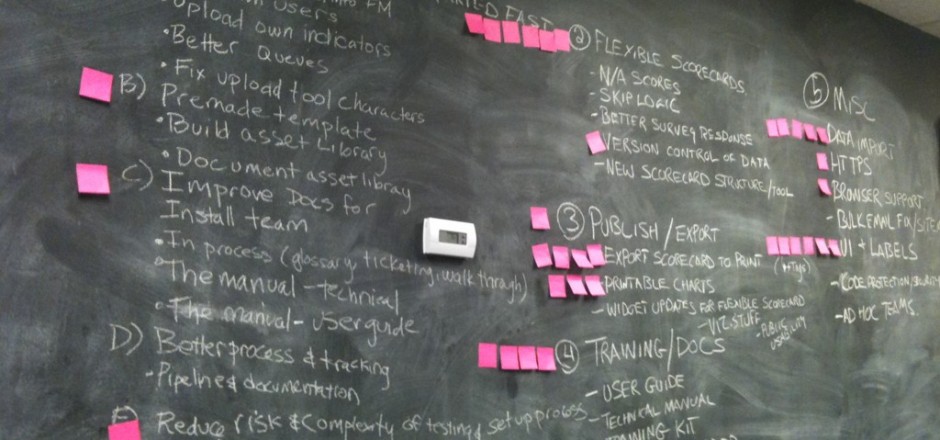 FM
Users
Upload own indicators
• Better Queues
• Fix upload tool characters
B) Premade template
• Build asset Library
• Document asset library
C) Improve Docs for
Install team
• In process (glossary, ticketing, walk through)
• The manual - technical
• The manual - user guide
D) Better process & tracking
- Pipeline & documentation
E) Reduce risk & Complexity of testing & setup process
FAST
② FLEXIBLE SCORECARDS
- N/A SCORES
- SKIP LOGIC
- BETTER SURVEY RESPONSE
VERSION CONTROL OF DATA
- NEW SCORECARD STRUCTURE/TOOL
③ PUBLISH/EXPORT
EXPORT SCORECARD TO PRINT
PRINTABLE CHARTS
- WIDGET UPDATES FOR FLEXIBLE SCORECARD
- VIZ STUFF
- PUBLIC
USABILITY
④ TRAINING/DOCS
- USER GUIDE
- TECHNICAL MANUAL
TRAINING KIT
⑤ MISC
DATA IMPORT
HTTPS
BROWSER SUPPORT
- BULK EMAIL FIX/SITE
UI + LABELS
- CODE PROTECTION/SECURITY
- AD HOC TEAMS